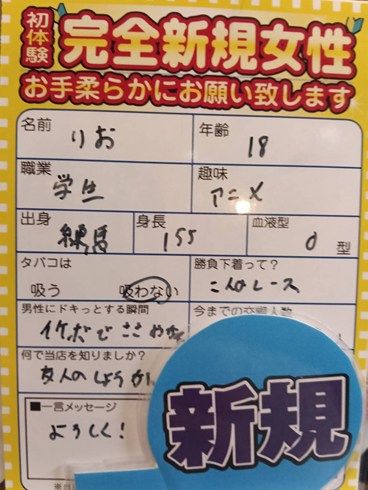 初体験
完全新規女性
お手柔らかにお願い致します
名前 りお 年齢 18
職業 学生 趣味 アニメ
出身 練馬 身長 155 血液型 O 型
タバコは 吸う 吸わない 勝負下着って? レース
男性にドキっとする瞬間 イケボで 今までの
何で当店を知りましたか?
友人のしょうかい
■一言メッセージ
よろしく!
新規